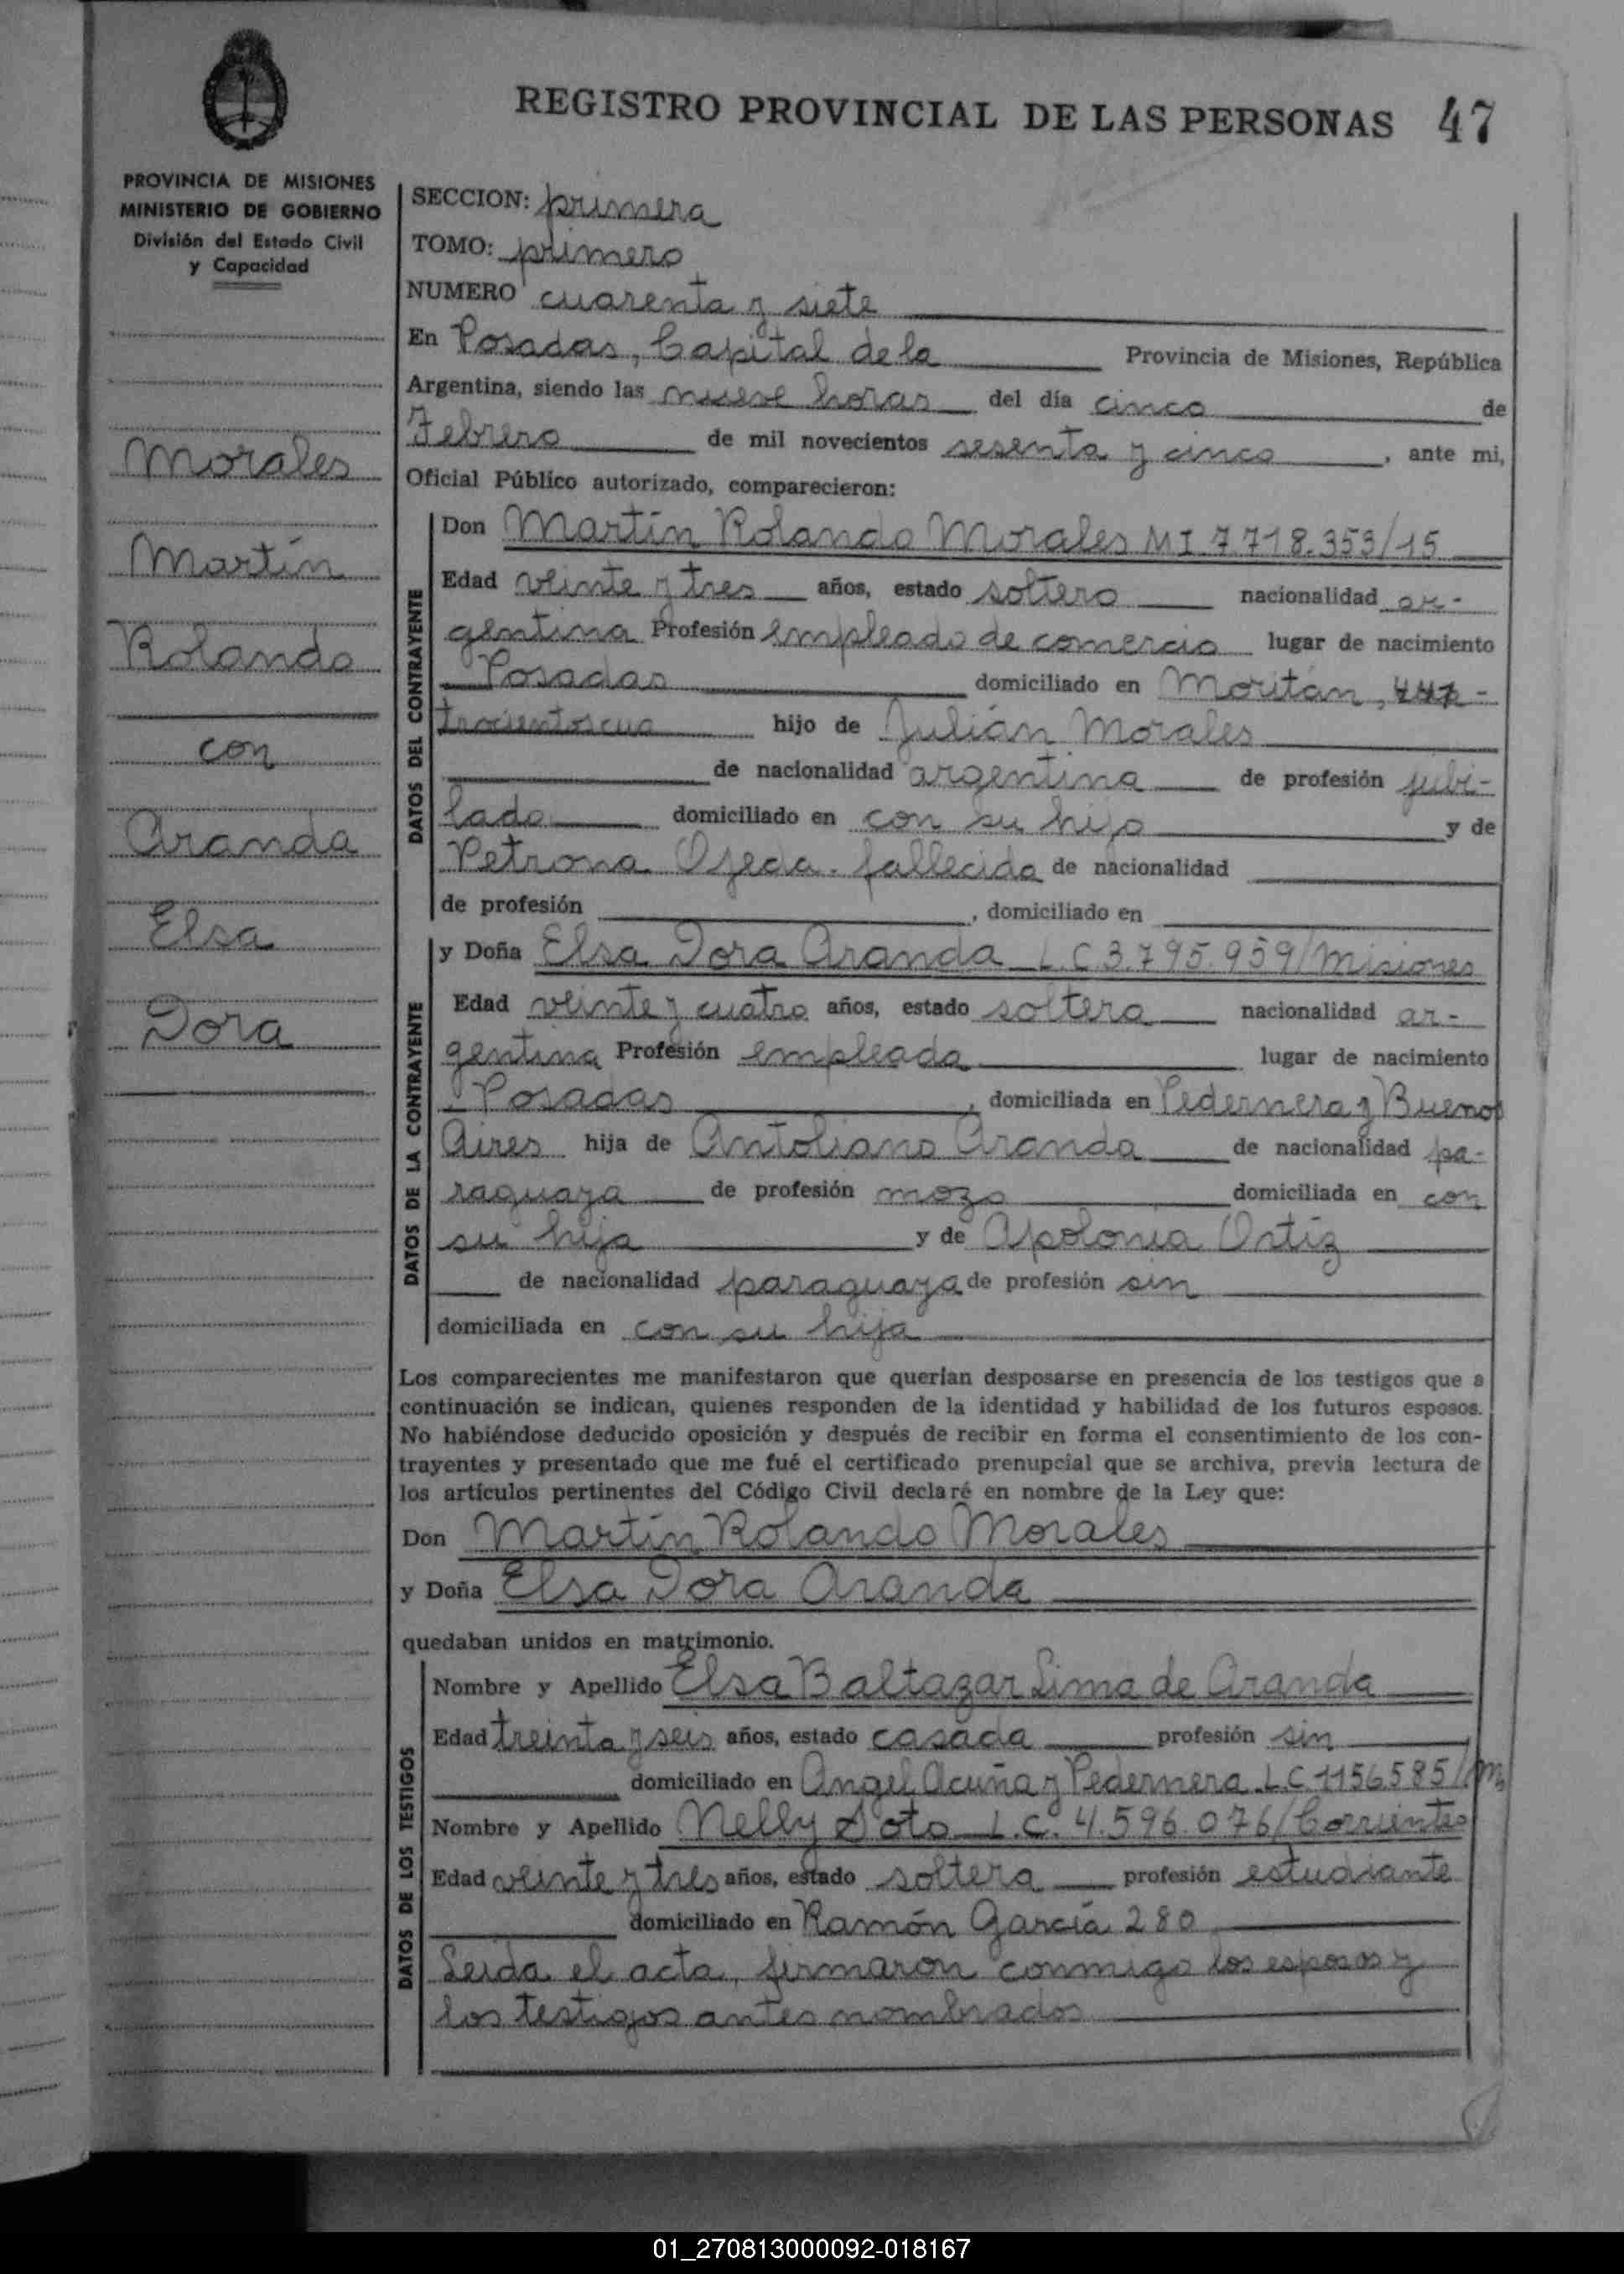 REGISTRO PROVINCIAL DE LAS PERSONAS 47
PROVINCIA DE MISIONES
MINISTERIO DE GOBIERNO
División del Estado Civil
y Capacidad
Morales
Martín
Rolando
con
Aranda
Elsa
Dora
SECCION: primera
TOMO: primero
NUMERO cuarenta y siete
En Posadas, Capital de la Provincia de Misiones, República
Argentina, siendo las nueve horas del día cinco de
Febrero de mil novecientos sesenta y cinco, ante mi,
Oficial Público autorizado, comparecieron:
DATOS DEL CONTRAYENTE
Don Martín Rolando Morales MI 7.718.353/15
Edad veinte y tres años, estado soltero nacionalidad ar-
gentina Profesión empleado de comercio lugar de nacimiento
Posadas domiciliado en Moritán,
hijo de Julián Morales
de nacionalidad argentina de profesión jubi-
lado domiciliado en con su hijo y de
Petrona Ojeda. fallecida de nacionalidad
de profesión , domiciliado en
DATOS DE LA CONTRAYENTE
y Doña Elsa Dora Aranda L.C 3.795.959/Misiones
Edad veinte y cuatro años, estado soltera nacionalidad ar-
gentina Profesión empleada lugar de nacimiento
Posadas, domiciliada en Pedernera y Buenos
Aires hija de Antoliano Aranda de nacionalidad pa-
raguaya de profesión mozo domiciliada en con
su hija y de Apolonia Ortiz
de nacionalidad paraguaya de profesión sin
domiciliada en con su hija
Los comparecientes me manifestaron que querían desposarse en presencia de los testigos que a
continuación se indican, quienes responden de la identidad y habilidad de los futuros esposos.
No habiéndose deducido oposición y después de recibir en forma el consentimiento de los con-
trayentes y presentado que me fué el certificado prenupcial que se archiva, previa lectura de
los artículos pertinentes del Código Civil declaré en nombre de la Ley que:
Don Martín Rolando Morales
y Doña Elsa Dora Aranda
quedaban unidos en matrimonio.
DATOS DE LOS TESTIGOS
Nombre y Apellido Elsa Baltazar Lima de Aranda
Edad treinta y seis años, estado casada profesión sin
domiciliado en Angel Acuña y Pedernera L.C. 1156585/M
Nombre y Apellido Nelly Soto L.C. 4.596.076/Corrientes
Edad veinte y tres años, estado soltera profesión estudiante
domiciliado en Ramón García 280
Leida el acta, firmaron conmigo los esposos y
los testigos antes nombrados
01_270813000092-018167